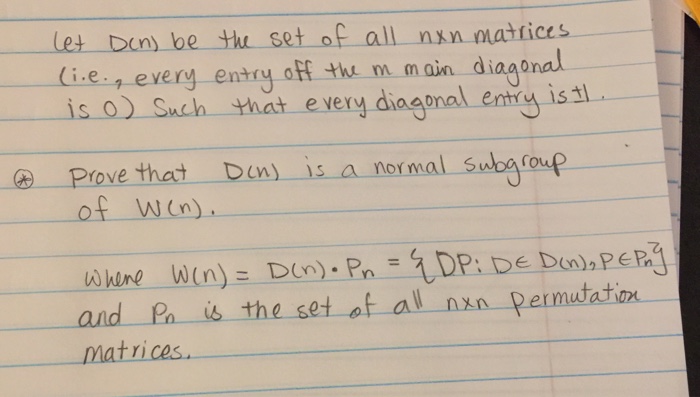 Let D(n) be the set of all nxn matrices
(i.e., every entry off the m main diagonal
is 0) Such that every diagonal entry is ±1.
⊛ Prove that D(n) is a normal subgroup
of W(n).
Where W(n) = D(n)·Pn = {DP: D∈ D(n), P∈Pn}
and Pn is the set of all nxn permutation
matrices.